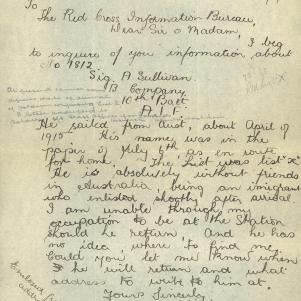 To
The Red Cross Information Bureau,
Dear Sir o Madam,
I beg
to inquire of you information about
No 1812
Sig. A Sullivan.
B Company
10th Batt
A.I.F.
He sailed from Aust, about April of
1915. His name was in the
paper of July 6th as en route
for home. The List was list "X"
He is absolutely without friends
in Australia being an imigrant
who enlisted shortly after arrival
I am unable through my
occupation to be at the Station
should he return. And he has
no idea where to find me.
Could you let me know when
he will return and what
address to write to him at.
Yours Sincerely
Enclosed